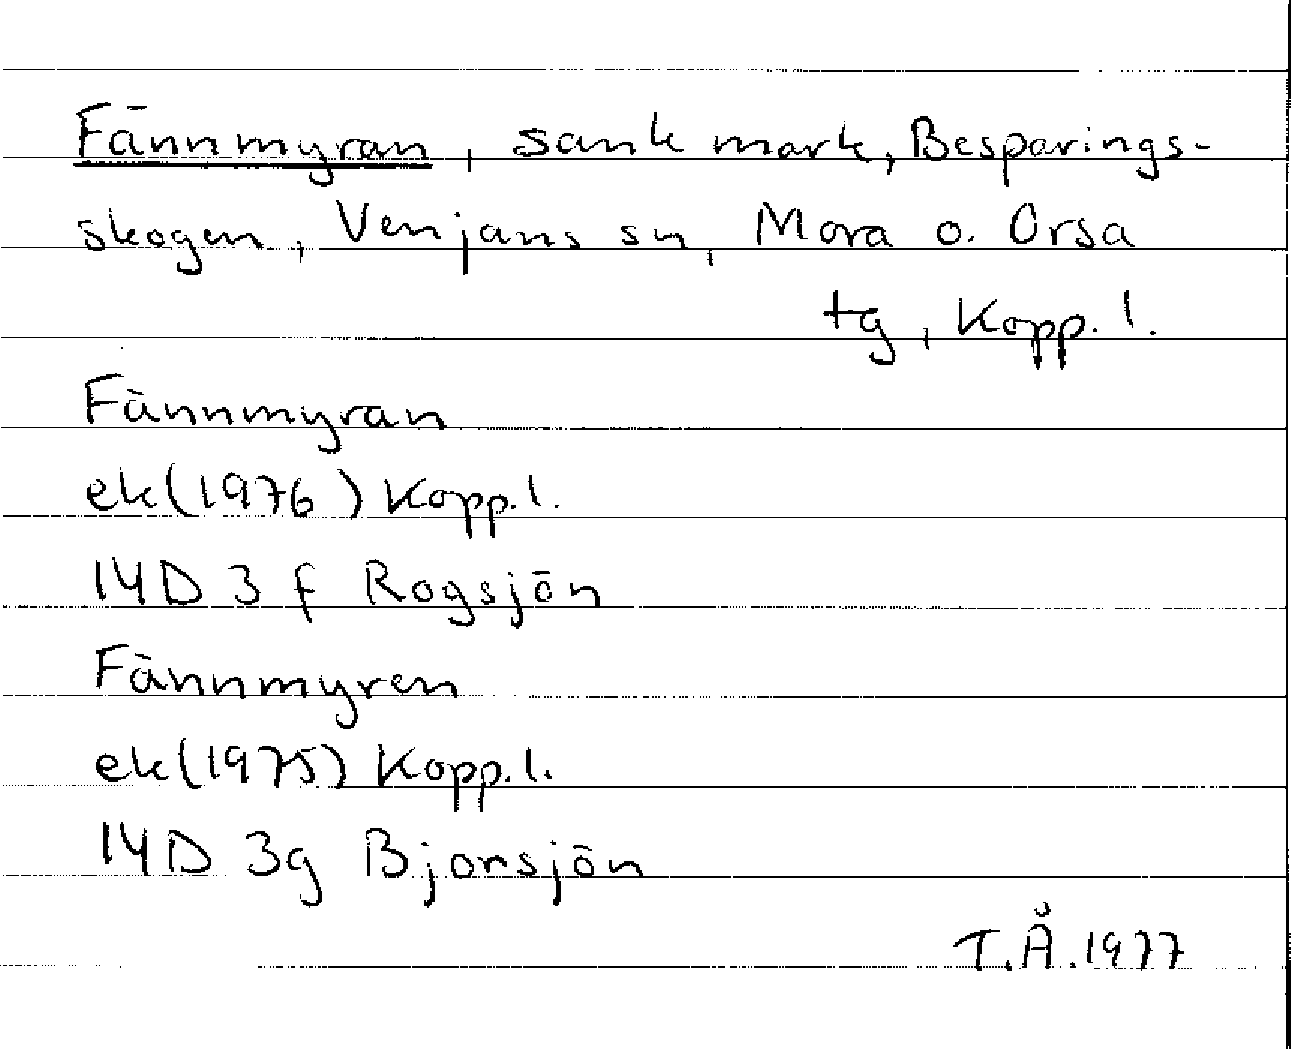 Fännmyran, sank mark, Besparings-
skogen, Venjans sn, Mora o. Orsa
tg, Kopp. l.
Fännmyran
ek(1976) Kopp. l.
14D 3 f Rogsjön
Fännmyren
ek(1975) Kopp. l.
14D 3g Bjorsjön
T.Å. 1977